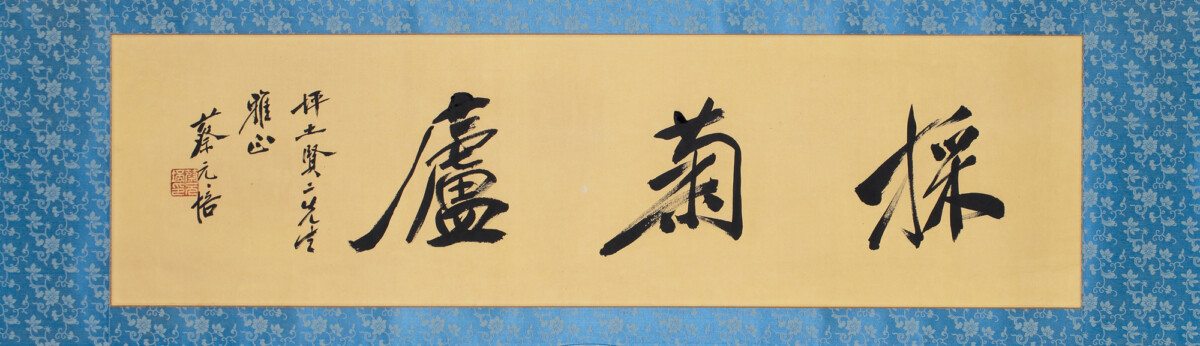 採菊廬
坪上賢二先生
雅正
蔡元培